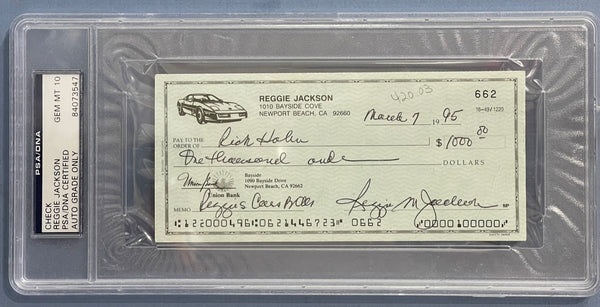 PSA/DNA
GEM MT 10
84073547
CHECK
REGGIE JACKSON
PSA/DNA CERTIFIED
AUTO GRADE ONLY
REGGIE JACKSON
1010 BAYSIDE COVE
NEWPORT BEACH, CA 92660
420.03
662
16-49/1220
March 7 1995
PAY TO THE
ORDER OF Rick Hahn
$ 1000 00
One thousand and
DOLLARS
Bayside
1090 Bayside Drive
Newport Beach, CA 92662
Union Bank
MEMO Reggie's Cars
Reggie M Jackson MP
122000496 0621446723 0662